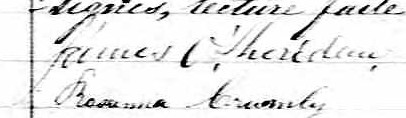 signés, lecture faite
James O'Sheridan.
Rosanna Crumby